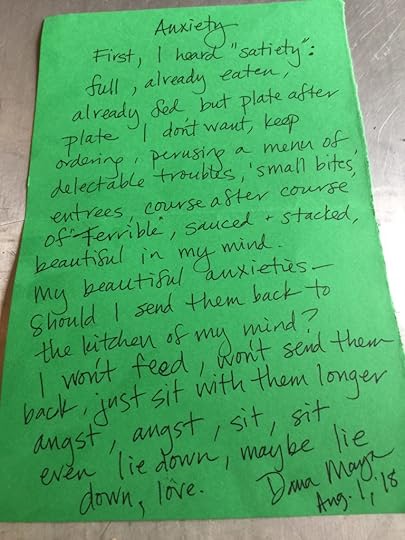 Anxiety
First, I heard "satiety":
full, already eaten,
already fed but plate after
plate I don't want, keep
ordering, perusing a menu of
delectable troubles, 'small bites,
entrees, course after course
of "terrible", sauced + stacked,
beautiful in my mind.
My beautiful anxieties—
Should I send them back to
the kitchen of my mind?
I won't feed, won't send them
back, just sit with them longer
angst, angst, sit, sit
even lie down, maybe lie
down, love.
Dana Maya
Aug. 1, '18